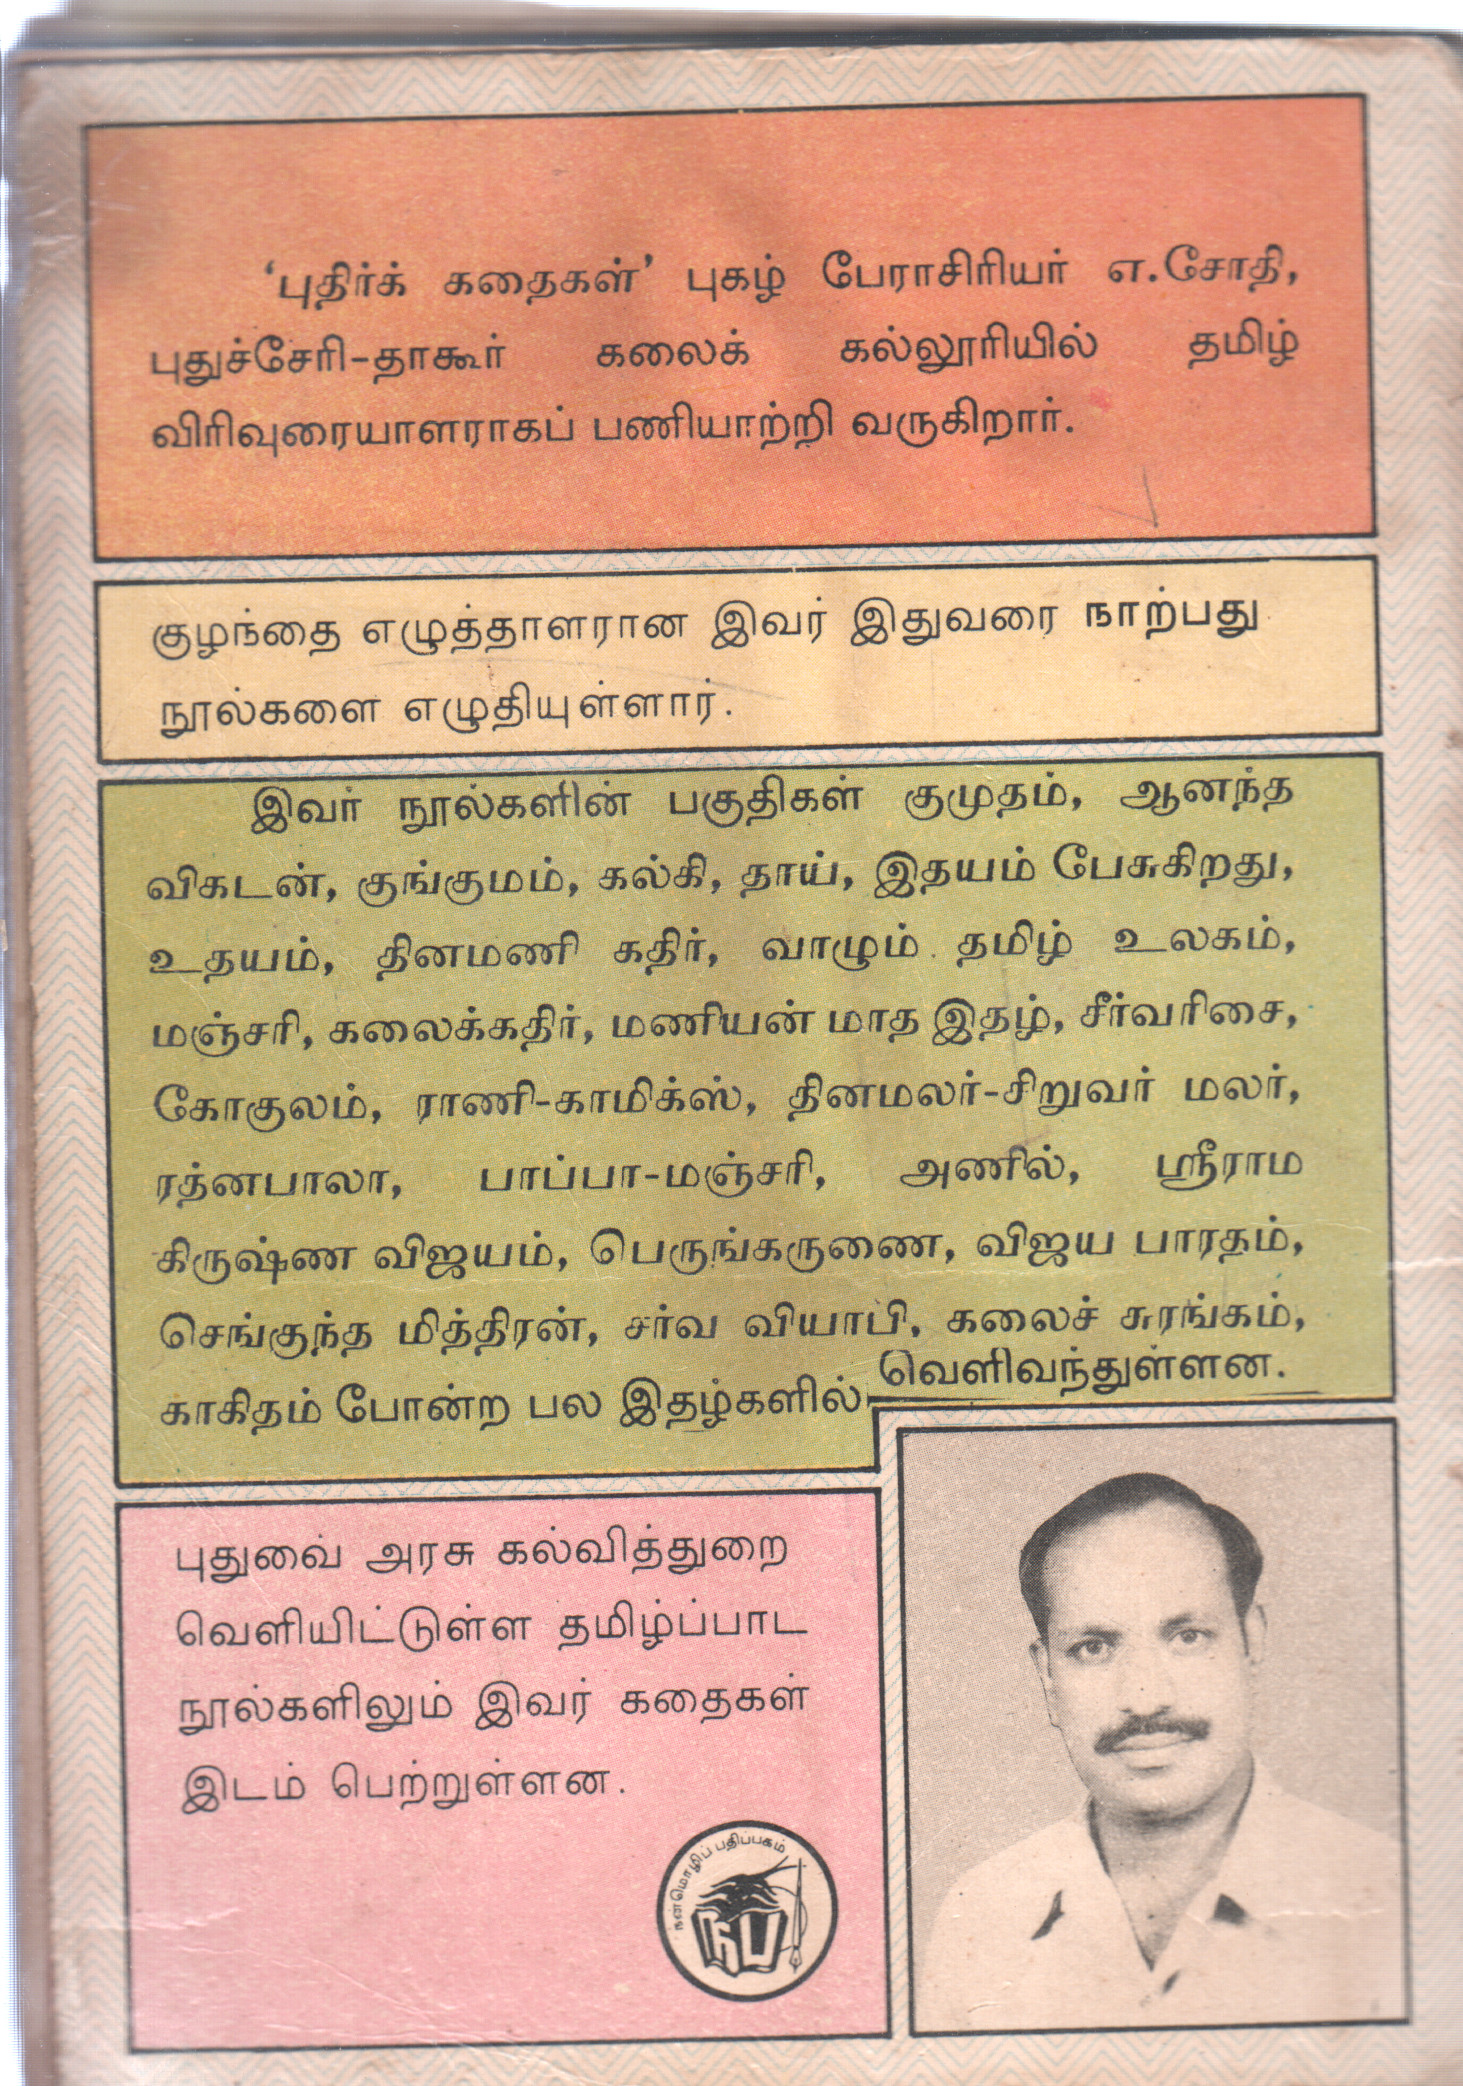 ‘புதிர்க் கதைகள்’ புகழ் பேராசிரியர் எ.சோதி,
புதுச்சேரி-தாகூர் கலைக் கல்லூரியில் தமிழ்
விரிவுரையாளராகப் பணியாற்றி வருகிறார்.
குழந்தை எழுத்தாளரான இவர் இதுவரை நாற்பது
நூல்களை எழுதியுள்ளார்.
இவர் நூல்களின் பகுதிகள் குமுதம், ஆனந்த
விகடன், குங்குமம், கல்கி, தாய், இதயம் பேசுகிறது,
உதயம், தினமணி கதிர், வாழும் தமிழ் உலகம்,
மஞ்சரி, கலைக்கதிர், மணியன் மாத இதழ், சீர்வரிசை,
கோகுலம், ராணி-காமிக்ஸ், தினமலர்-சிறுவர் மலர்,
ரத்னபாலா, பாப்பா-மஞ்சரி, அணில், ஸ்ரீராம
கிருஷ்ண விஜயம், பெருங்கருணை, விஜய பாரதம்,
செங்குந்த மித்திரன், சர்வ வியாபி, கலைச் சுரங்கம்,
காகிதம் போன்ற பல இதழ்களில் வெளிவந்துள்ளன.
புதுவை அரசு கல்வித்துறை
வெளியிட்டுள்ள தமிழ்ப்பாட
நூல்களிலும் இவர் கதைகள்
இடம் பெற்றுள்ளன.
நன்மொழிப் பதிப்பகம்